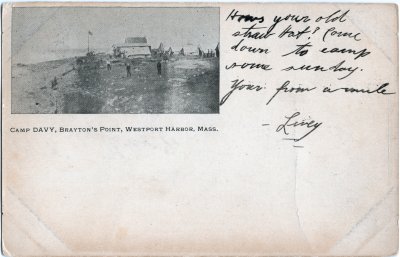 Hows your old
straw hat? Come
down to camp
some sunday.
Your from a mile
- Livey
CAMP DAVY, BRAYTON'S POINT, WESTPORT HARBOR, MASS.